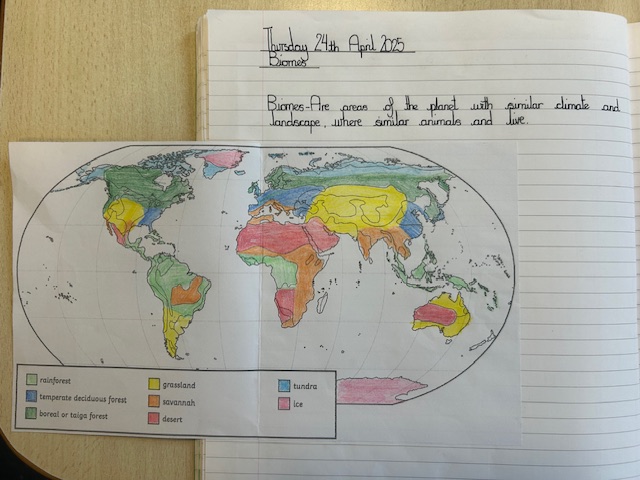 Thursday 24th April 2025
Biomes
Biomes-Are areas of the planet with similar climate and
landscape, where similar animals and live.
rainforest
temperate deciduous forest
boreal or taiga forest
grassland
savannah
desert
tundra
ice